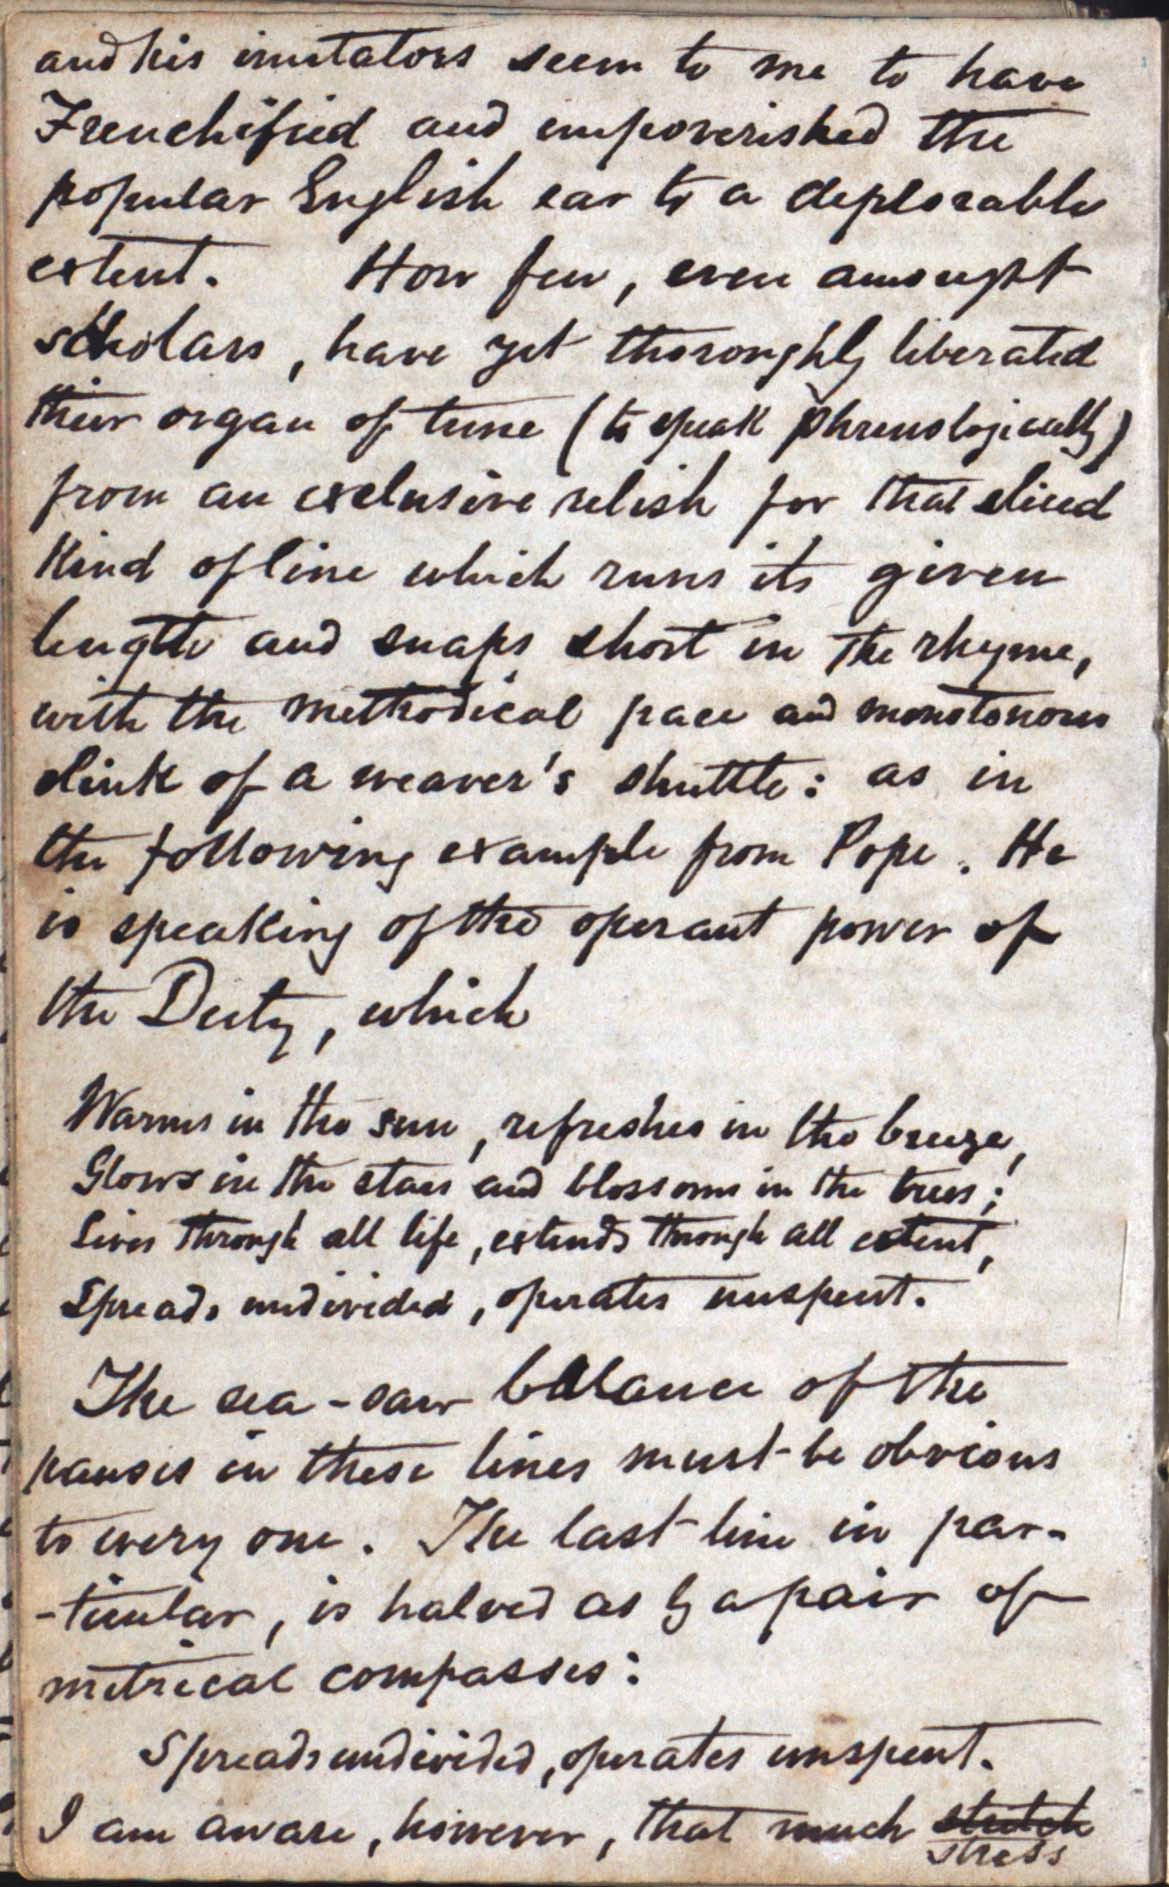 and his imitators seem to me to have
Frenchified and impoverished the
popular English ear to a deplorable
extent. How few, even amongst
scholars, have yet thoroughly liberated
their organ of tune (to speak phrenologically)
from an exclusive relish for that sliced
kind of line which runs its given
length and snaps short in the rhyme,
with the methodical pace and monotonous
clink of a weaver's shuttle: as in
the following example from Pope. He
is speaking of the operant power of
the Deity, which
Warms in the sun, refreshes in the breeze,
Glows in the stars and blossoms in the trees;
Lives through all life, extends through all extent,
Spreads undivided, operates unspent.
The sea-saw balance of the
pauses in these lines must be obvious
to every one. The last line in par-
-ticular, is halved as by a pair of
metrical compasses:
Spreads undivided, operates unspent.
I am aware, however, that much stretch
stress